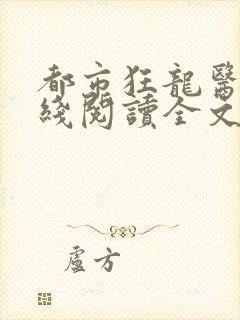 都市狂龍醫
綫閱讀全文
盧方